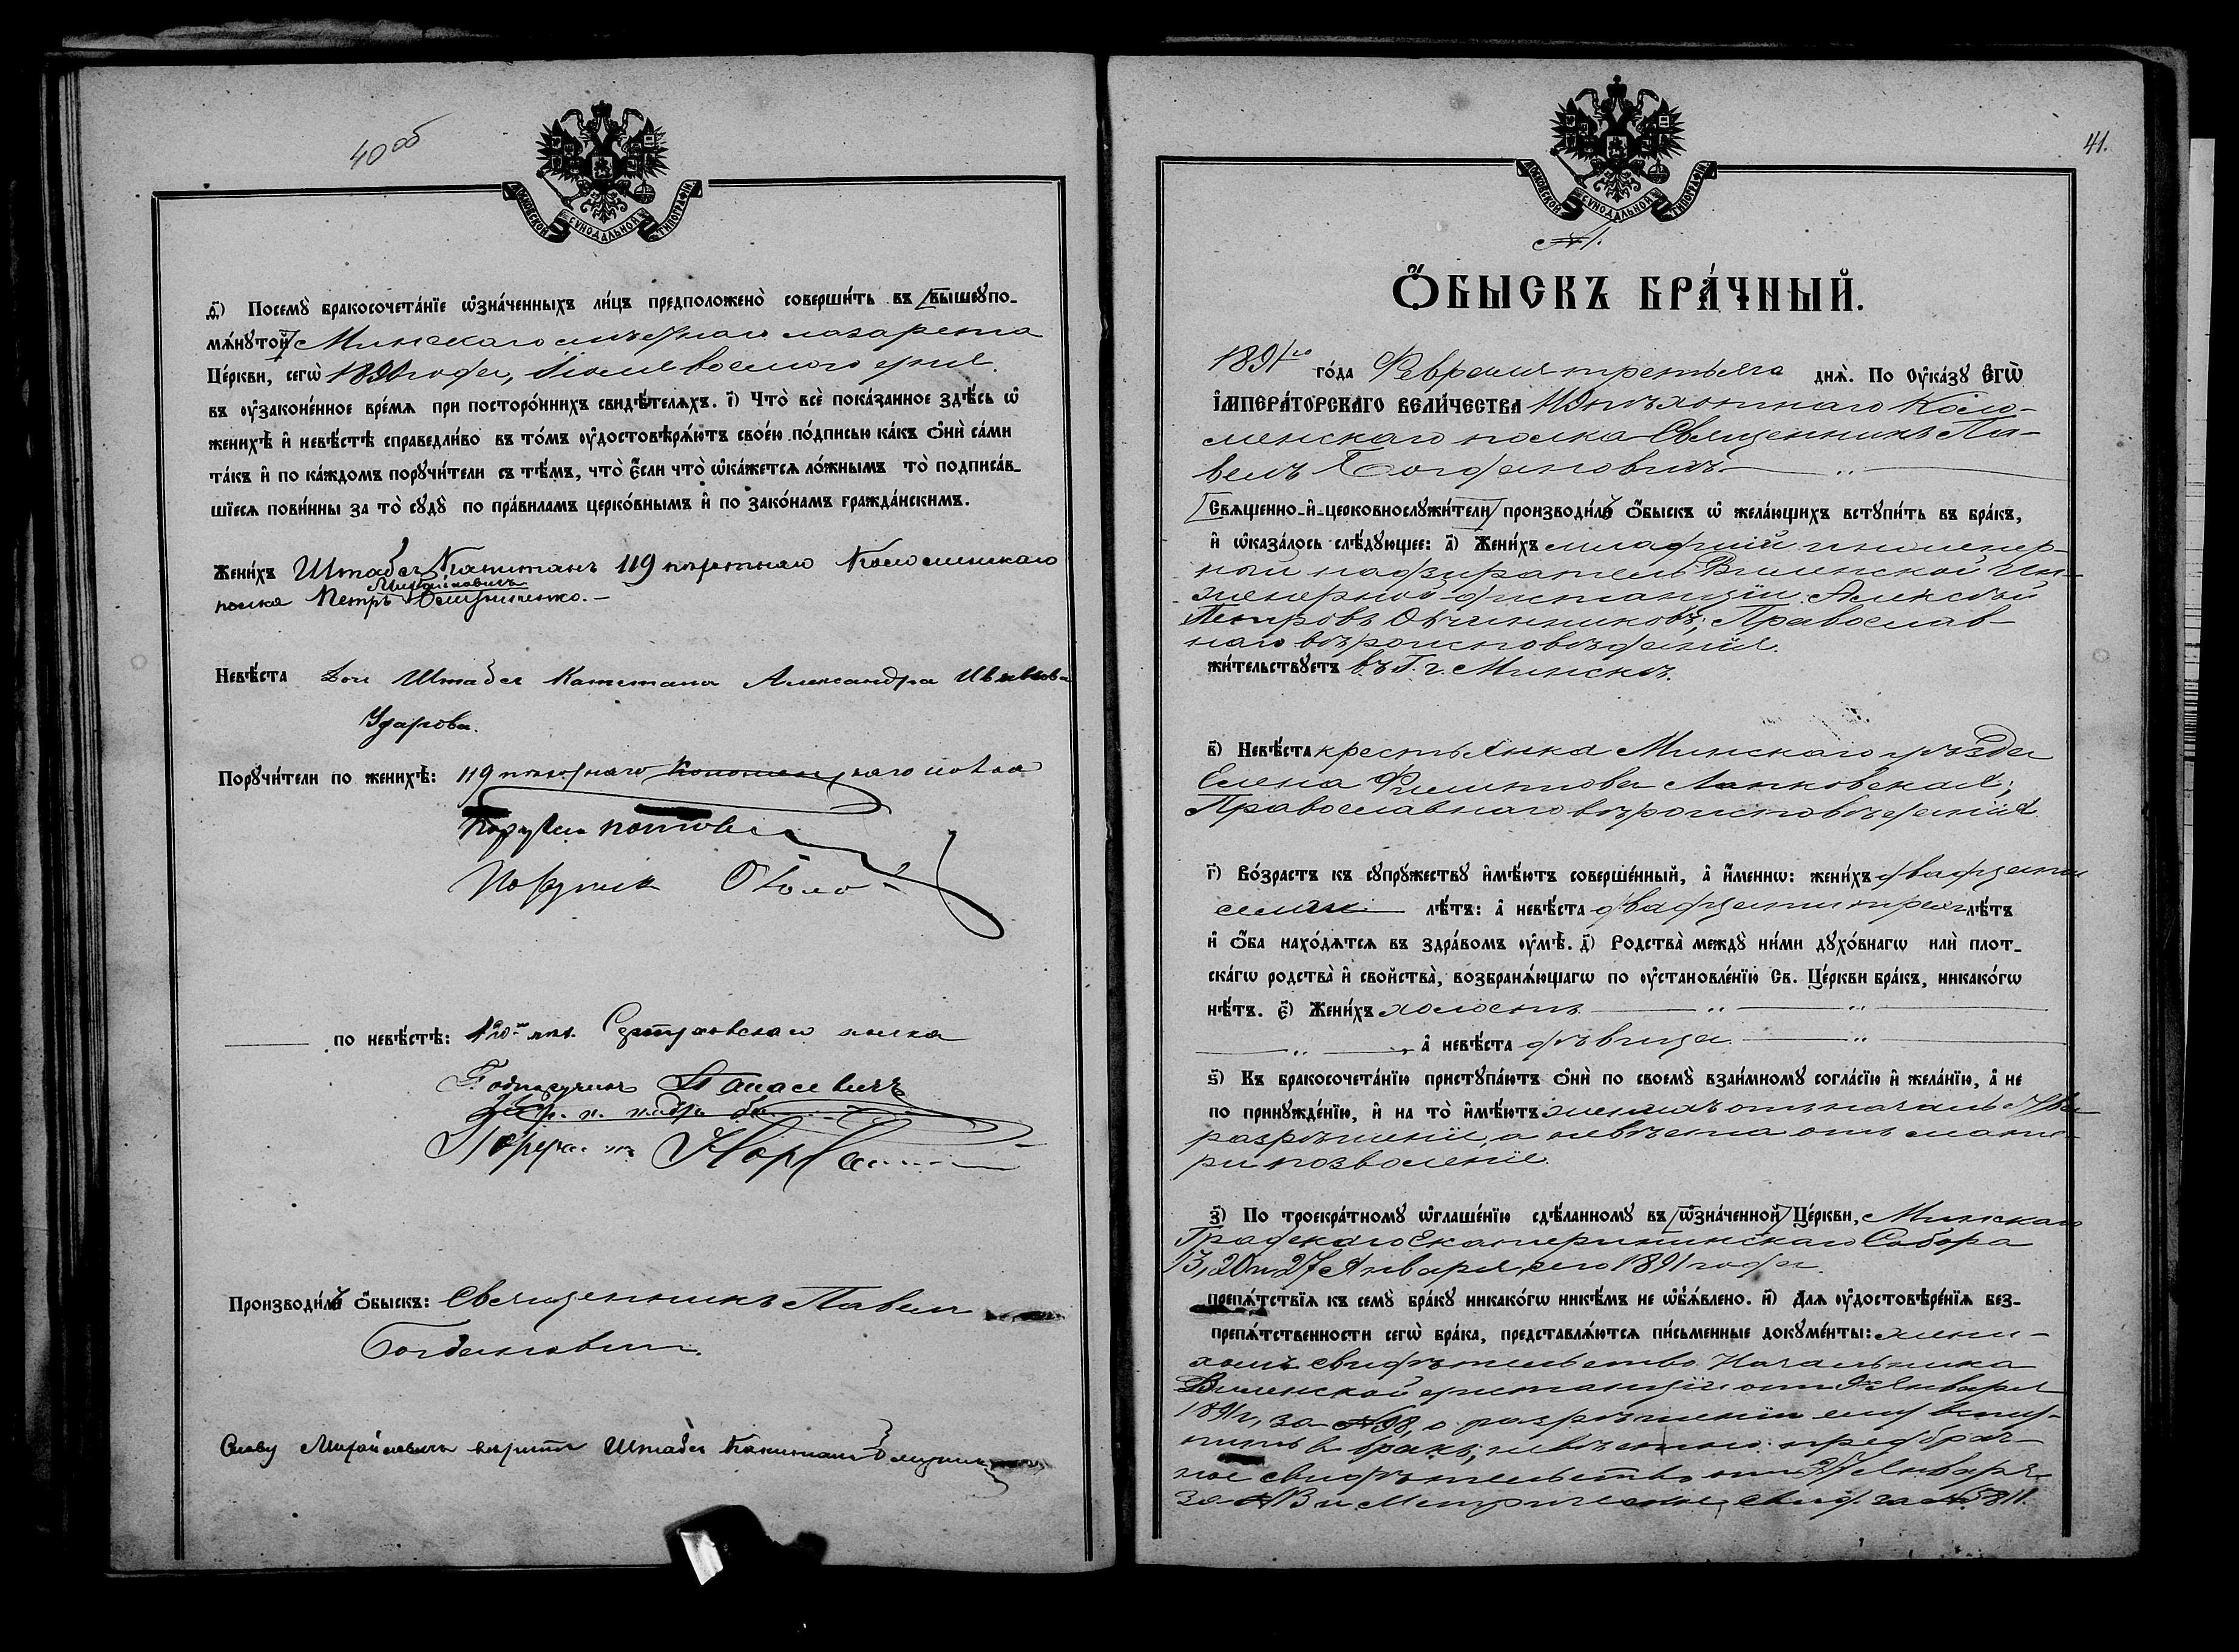 40 об
МОСКОВСКОЙ СѴНОДАЛЬНОЙ ТИПОГРАФІИ
д҃і) Посемꙋ бракосочетанїе ѡзначенныхъ лицъ предположено совершить въ [вышеꙋпо-
мѧнꙋтой] Минскаго мѣстнаго лазарета
Церкви, сегѡ 1890 года, Іюля восмого дня.
въ ᲂузаконенное время при постороннихъ свидѣтеляхъ. і҃) Что все показанное здѣсь ѡ
женихѣ и невѣстѣ справедливо въ томъ ᲂудостовѣряютъ своею подписью какъ ѻни сами
такъ и по каждомъ порꙋчители съ тѣмъ, что єсли что ѡкажется ложнымъ то подписав-
шїеся повинны за то сꙋдꙋ по правиламъ церковнымъ и по законамъ гражданскимъ.
Женихъ Штабсъ Капитанъ 119 пѣхотнаго Коломенскаго
Михайловичъ
полка Петръ
Невѣста Дочь Штабсъ Капитана Александра
Ударова.
Порꙋчители по женихѣ: 119 пѣхотнаго Коломенскаго полка
Поручикъ
Поручикъ
по невѣстѣ: Серпуховскаго полка
Подпоручикъ
Поручикъ
Производилъ ѻбыскъ: Священникъ Павелъ
Богдановичъ.
Слову Михайловичъ вѣрить Штабсъ Капитанъ
41.
МОСКОВСКОЙ СѴНОДАЛЬНОЙ ТИПОГРАФІИ
№ 1.
ѺБЫСКЪ БРАЧНЫЙ.
1891го года Февраля третьяго днѧ. По ᲂуказꙋ ЄГѠ
ІМПЕРАТОРСКАГО ВЕЛИЧЕСТВА 119 пѣхотнаго Коло-
менскаго полка Священникъ Па-
велъ Богдановичъ
[Священно-и-церковнослꙋжители] производилъ ѻбыскъ ѡ желающихъ вступить въ бракъ,
и ѡказалось слѣдꙋющее: а҃) Женихъ младшій инженер-
ный надзиратель Виленской Ин-
женерной дистанціи Алексѣй
Петровъ Овчинниковъ, Православ-
наго вѣроисповѣданія.
жительствꙋетъ въ г. Минскѣ.
в҃) Невѣста крестьянка Минскаго уѣзда
Елена Филиппова Лапковская,
Православнаго вѣроисповѣданія
г҃) Возрастъ къ сꙋпрꙋжествꙋ имѣютъ совершенный, а именнѡ: женихъ двадцати
семи лѣтъ: а невѣста двадцати трехъ лѣтъ
и ѻба находятся въ здравомъ ᲂумѣ. д҃) Родства междꙋ ними дꙋховнагѡ или плот-
скагѡ родства и свойства, возбраняющагѡ по ᲂустановленїю Св. Церкви бракъ, никакогѡ
нѣтъ. є҃) Женихъ холостъ
а невѣста дѣвица
ѕ҃) Къ бракосочетанїю пристꙋпаютъ ѻни по своемꙋ взаимномꙋ согласїю и желанїю, а не
по принꙋжденїю, и на то имѣютъ женихъ отъ начальства
разрѣшеніе, а невѣста отъ мате-
ри позволеніе.
з҃) По троекратномꙋ ѡглашенїю сдѣланномꙋ въ [ѡзначенной] Церкви, Минскаго
Градскаго Екатерининскаго Собора
13, 20 и 27 Января сего 1891 года.
препятствїя къ семꙋ бракꙋ никакогѡ никѣмъ не ѡбъявлено. и҃) Для ᲂудостовѣренїя без-
препятственности сегѡ брака, представляются письменные докꙋменты: жени-
хомъ свидѣтельство Начальника
Виленской дистанціи отъ Января
1891 г, за №98, о разрѣшеніи ему всту-
пить въ бракъ; невѣстою предбрач-
ное свидѣтельство отъ 27 Января
за №13 и Метрическое свид. за №5811.